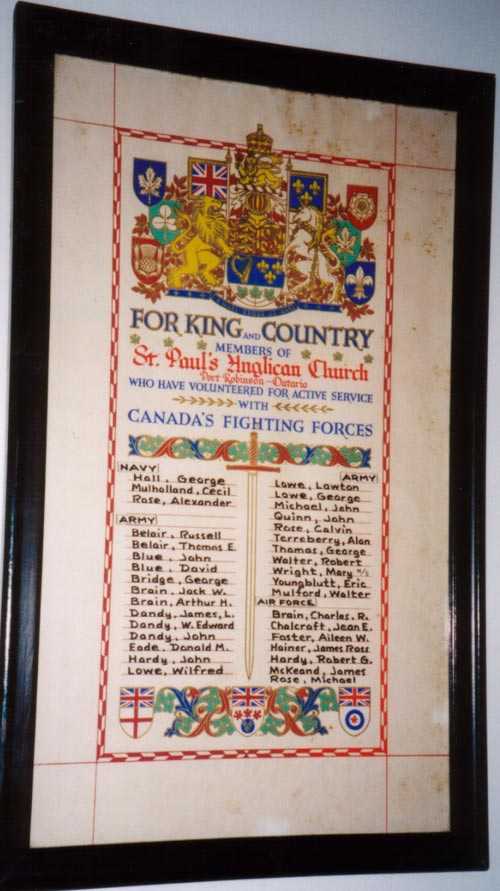 FOR KING AND COUNTRY
MEMBERS OF
St. Paul's Anglican Church
Port Robinson - Ontario
WHO HAVE VOLUNTEERED FOR ACTIVE SERVICE
WITH
CANADA'S FIGHTING FORCES
NAVY
Hall, George
Mulholland, Cecil
Rose, Alexander
ARMY
Belair, Russell
Belair, Thomas E.
Blue, John
Blue, David
Bridge, George
Brain, Jack W.
Brain, Arthur H.
Dandy, James, L.
Dandy, W. Edward
Dandy, John
Eade, Donald M.
Hardy, John
Lowe, Wilfred
ARMY
Lowe, Lawton
Lowe, George
Michael, John
Quinn, John
Rose, Calvin
Terreberry, Alan
Thomas, George
Walter, Robert
Wright, Mary N/S
Youngblutt, Eric
Mulford, Walter
AIR FORCE
Brain, Charles, R.
Chalcraft, Jean E.
Foster, Aileen W.
Hainer, James Ross
Hardy, Robert G.
McKeand, James
Rose, Michael